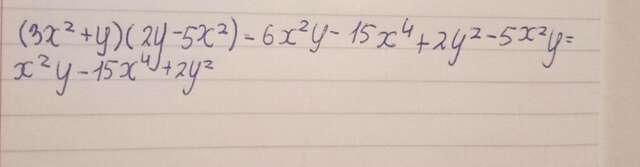 (3x²+y)(2y-5x²)-6x²y-15x⁴+2y²-5x²y=
x²y-15x⁴+2y²